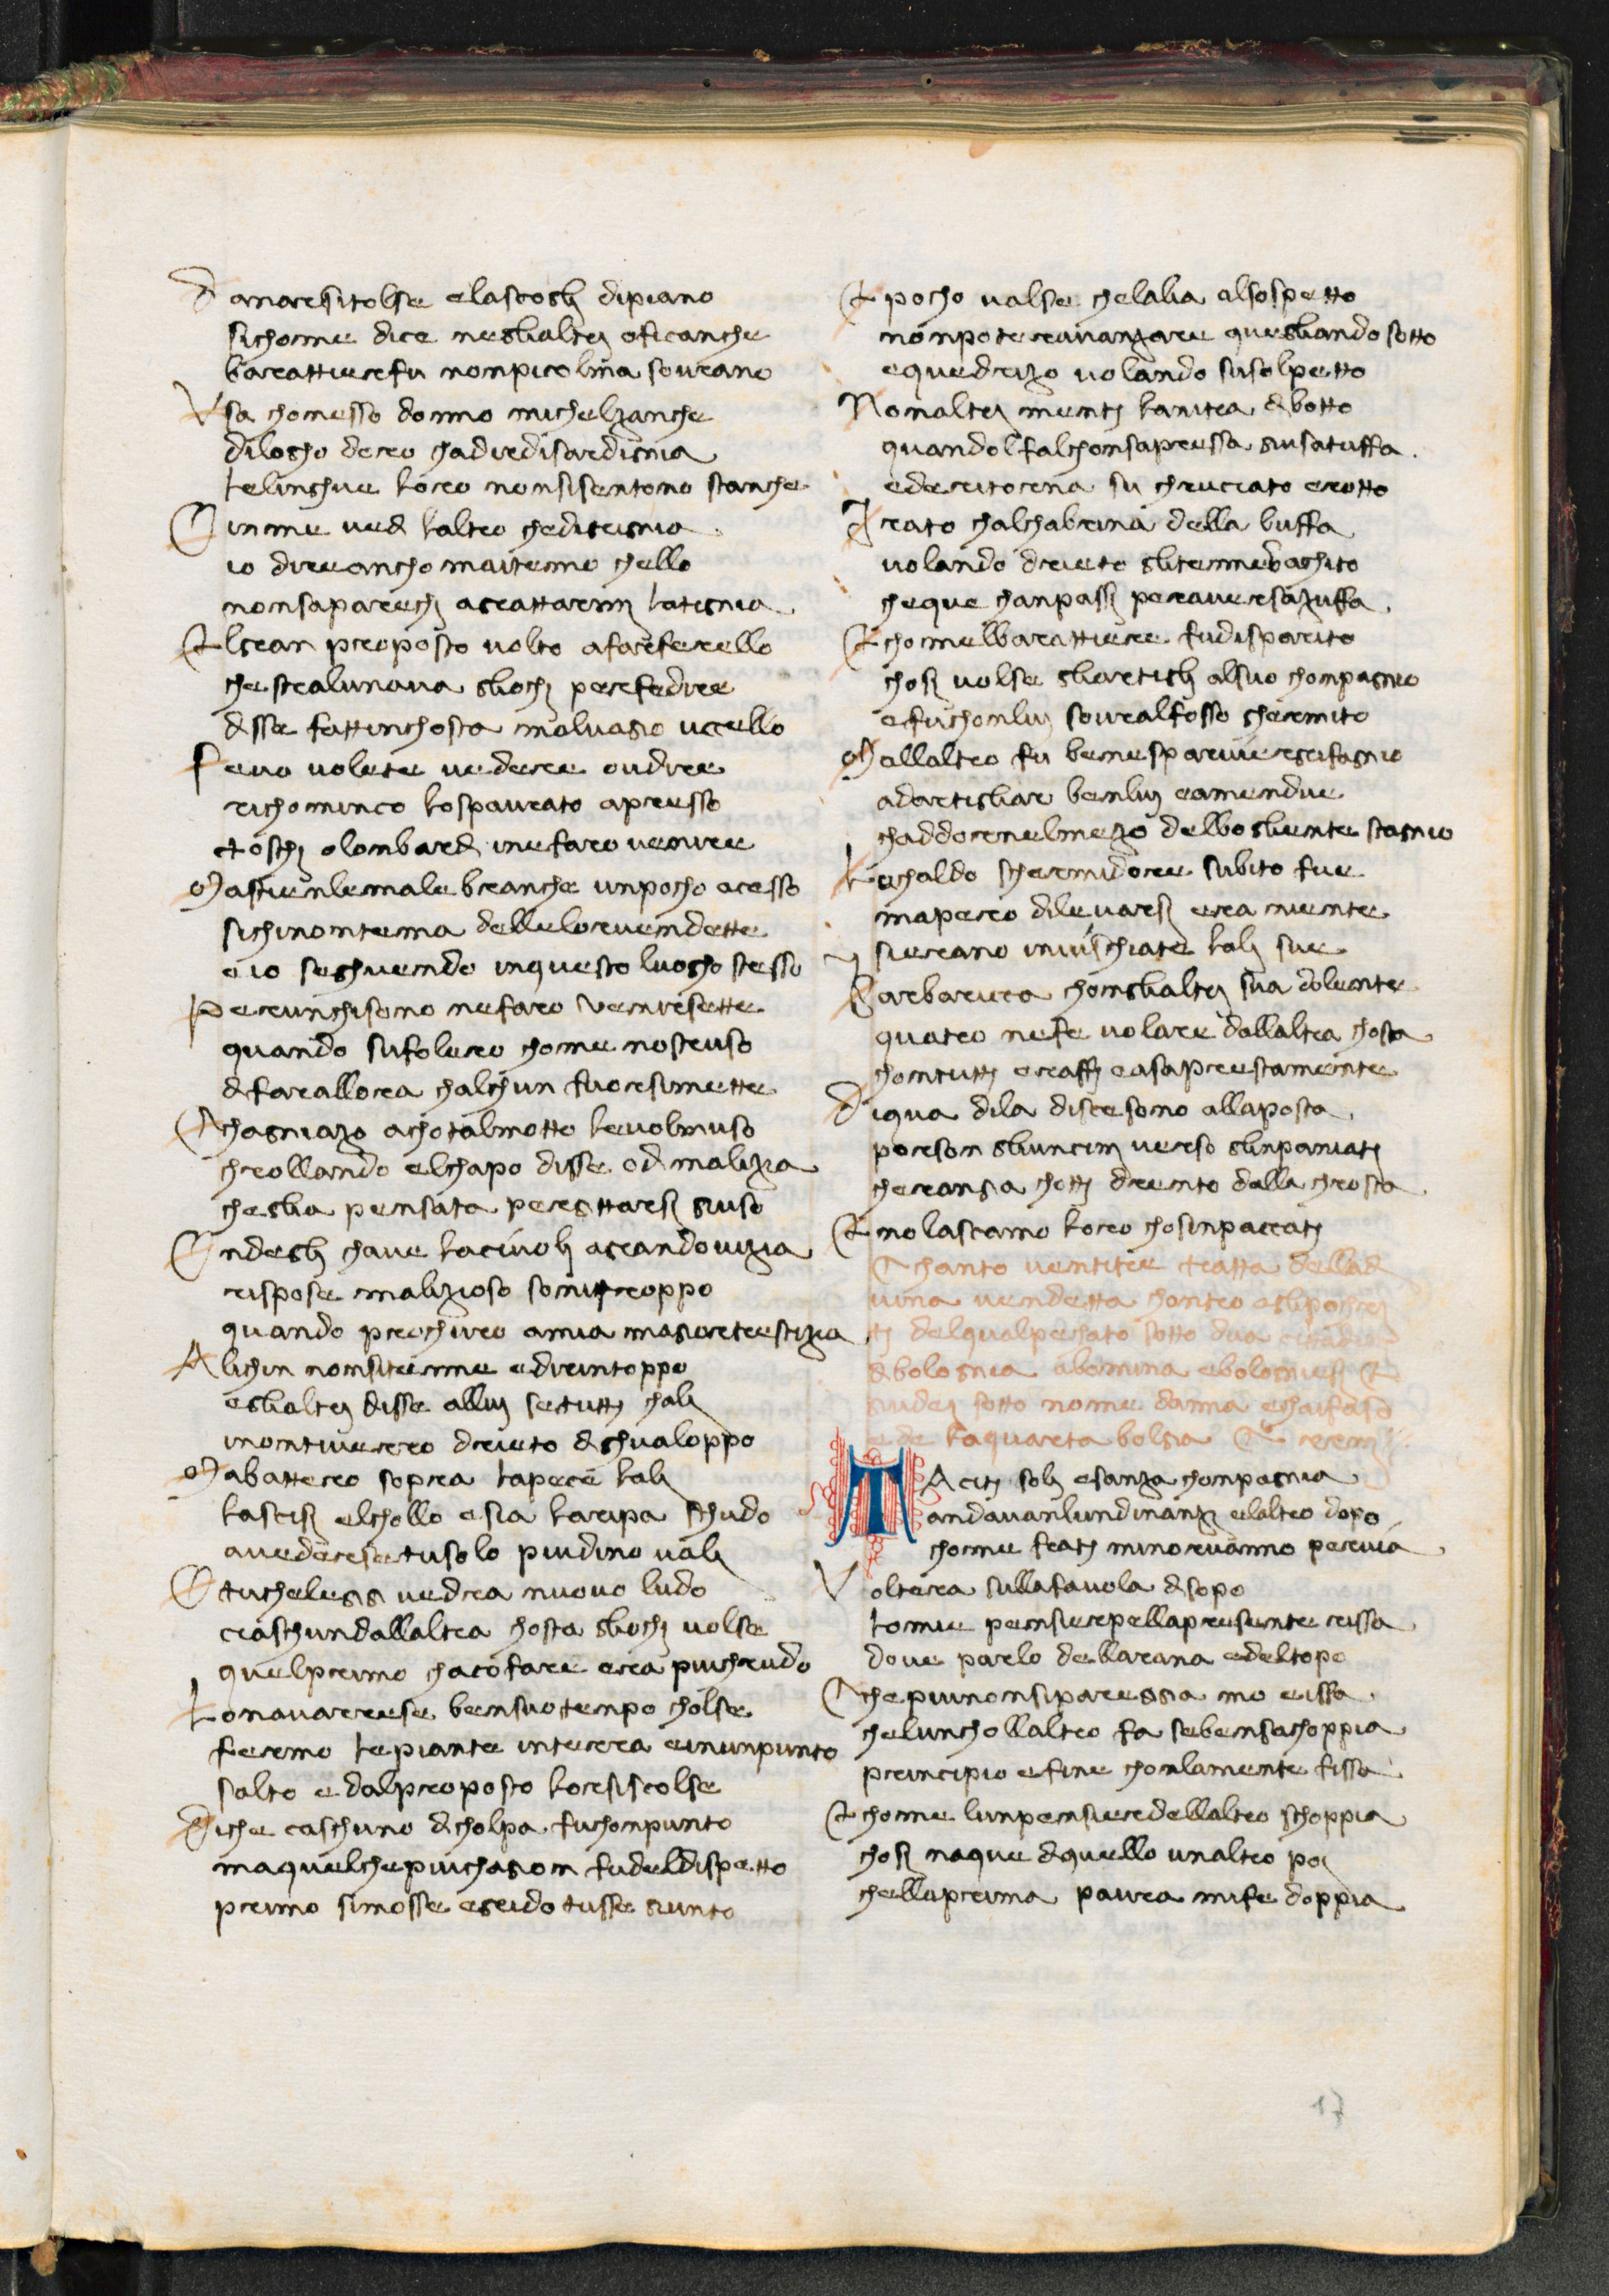 D anaresitolse elascogli dipiano
sichome dice neglialtri ofici anche
barattierefu nonpicolma sovrano
Usa chonesso donno michelzanche
dilogho doro chadiredisardignia
lelinghue loro nonsisentono stanche
O inme ved laltro chedigrignia
io direiancho maitemo chello
nonsaparechi agrattarmi latignia
E lgran proposto volto afarferello
che stralunava gliochi perfedire
disse fattinchosta malvagio uccello
S evo volete vedere oudire
richomincio lospaurato apresso
toschi olonbardi inefaro venire
M astienlemale branche unpocho acesso
sichinontema dellelorvendette
eio seghuendo inquesto luogho stesso
P erunchisono nefaro venirsette
quando sufolero chome nostruso
difareallora chalchun fuorsimette
C hagniazo achotalmotto levolmuso
chrollando elchapo disse odi malizia
cheglia pensata pergittarsi giuso
O ndegli chave laciuoli agrandovizia
rispose malizioso sonitroppo
quando prochuro amia magioretrestizia
A lichin nonsitenne edirintoppo
eglialtri disse allui setutti chali
inontiverro drieto dighualoppo
M abattero sopra lapecie lali
lascisi elchollo esia laripa schudo
avederesetusolo piudino vali
O tucheleggi vedrai nuovo ludo
ciaschundallaltra chosta gliochi volse
quelprimo chacofare era piuchrudo
L onavarrese bensuotenpo cholse
fermo lepiante interra einunpunto
salto edalproposto lorsiscolse
D iche ciaschuno dicholpa fuchonpunto
maquelchepiuchagion fudeldispetto
primo simosse egrido tusse giunto
E pocho valse chelalia alsospetto
nonpotereavanzare quegliando sotto
equedrizo volando susolpetto
N onaltri menti lanitra dibotto
quandol falchonsapressa giusatuffa
ederitorna su chruciato erotto
I rato chalchabrina della buffa
volando drieto glitennevaghito
cheque chanpassi peraversazuffa
E chomelbarattiere fudisparito
chosi volse gliartigli alsuo chompagnio
efuchonlui sovralfosso ghermito
M allaltro fu benesparviergrifagnio
adartigliar benlui eamendue
chaddornelmezo delbogliente stagnio
L ochaldo schermidore subito fue
mapero dilevarsi era niente
sierano invischiate lali sue
B arbaricia chonglialtri sua dolente
quatro nefe volare dallaltra chosta
chontutti eraffi easapreestamente
D iqua dila disciesono allaposta
porson gliuncini verso glinpaniati
cheranga chotti drento dalla chrosta
E nolasciamo loro chosinpacciati
Chanto ventitre tratta dellad
vina vendetta chontro aglipochri
ti delqualpechato sotto dua cittadini
dibolognia abomina ebolongniesi E
giudei sotto nome danna echaifaso
ede laquarta bolgia
TAciti soli esanza chompagnia
andavanlundinanzi elaltro dopo
chome frati minorvanno pervia
V oltera sullafavola disopo
lomie pensierepellapresente rissa
dove parlo dellarana edeltopo
C hepiunonsipareggia mo eissa
chelunchollaltro fa sebensachoppia
principio efine chonlamente fissa
E chome lunpensieredellaltro schoppia
chosi naque diquello unaltro poi
chellaprima paura mife doppia
17